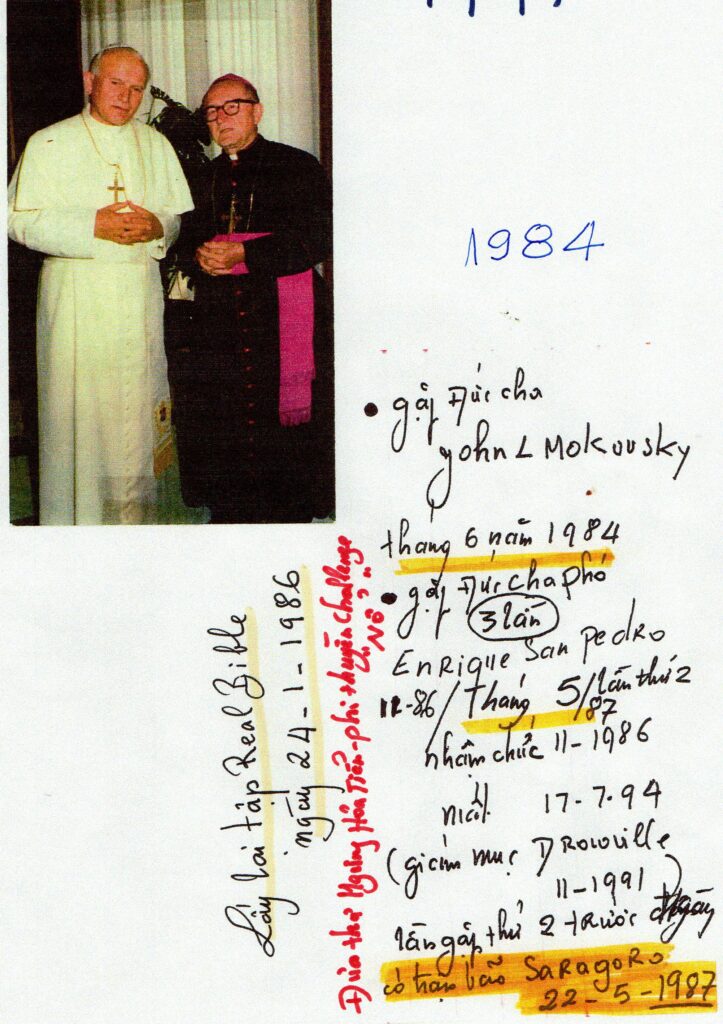 1984
• gặp Đức cha
John L MOKOVSKY
tháng 6 năm 1984
• gặp Đức cha phó
3 lần
ENRIQUE San PEDRO
11-86/tháng 5/87 lần thứ 2
nhậm chức 11-1986
mất 17-7-94
(giám mục DROWOVILLE
11-1991)
lần gặp thứ 2 trước ngày
có trận bão SARAGORO
22-5-1987
Lấy lại tập Real Bible
ngày 24-1-1986
phi thuyền challenge
Nổ